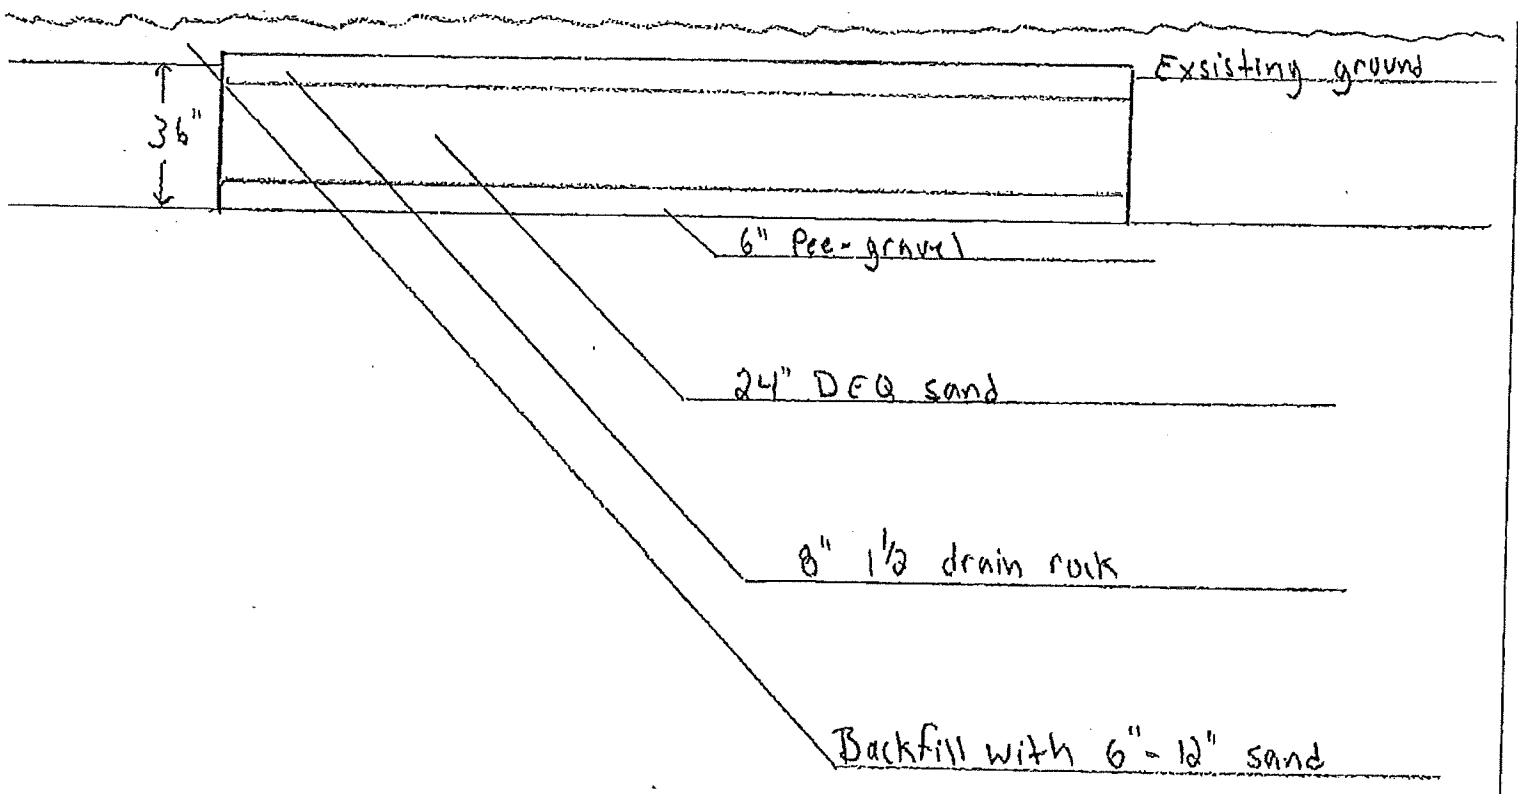 Exsisting ground
36"
6" Pee-gravel
24" DEQ sand
8" 1 1/2 drain rock
Backfill with 6"-12" sand